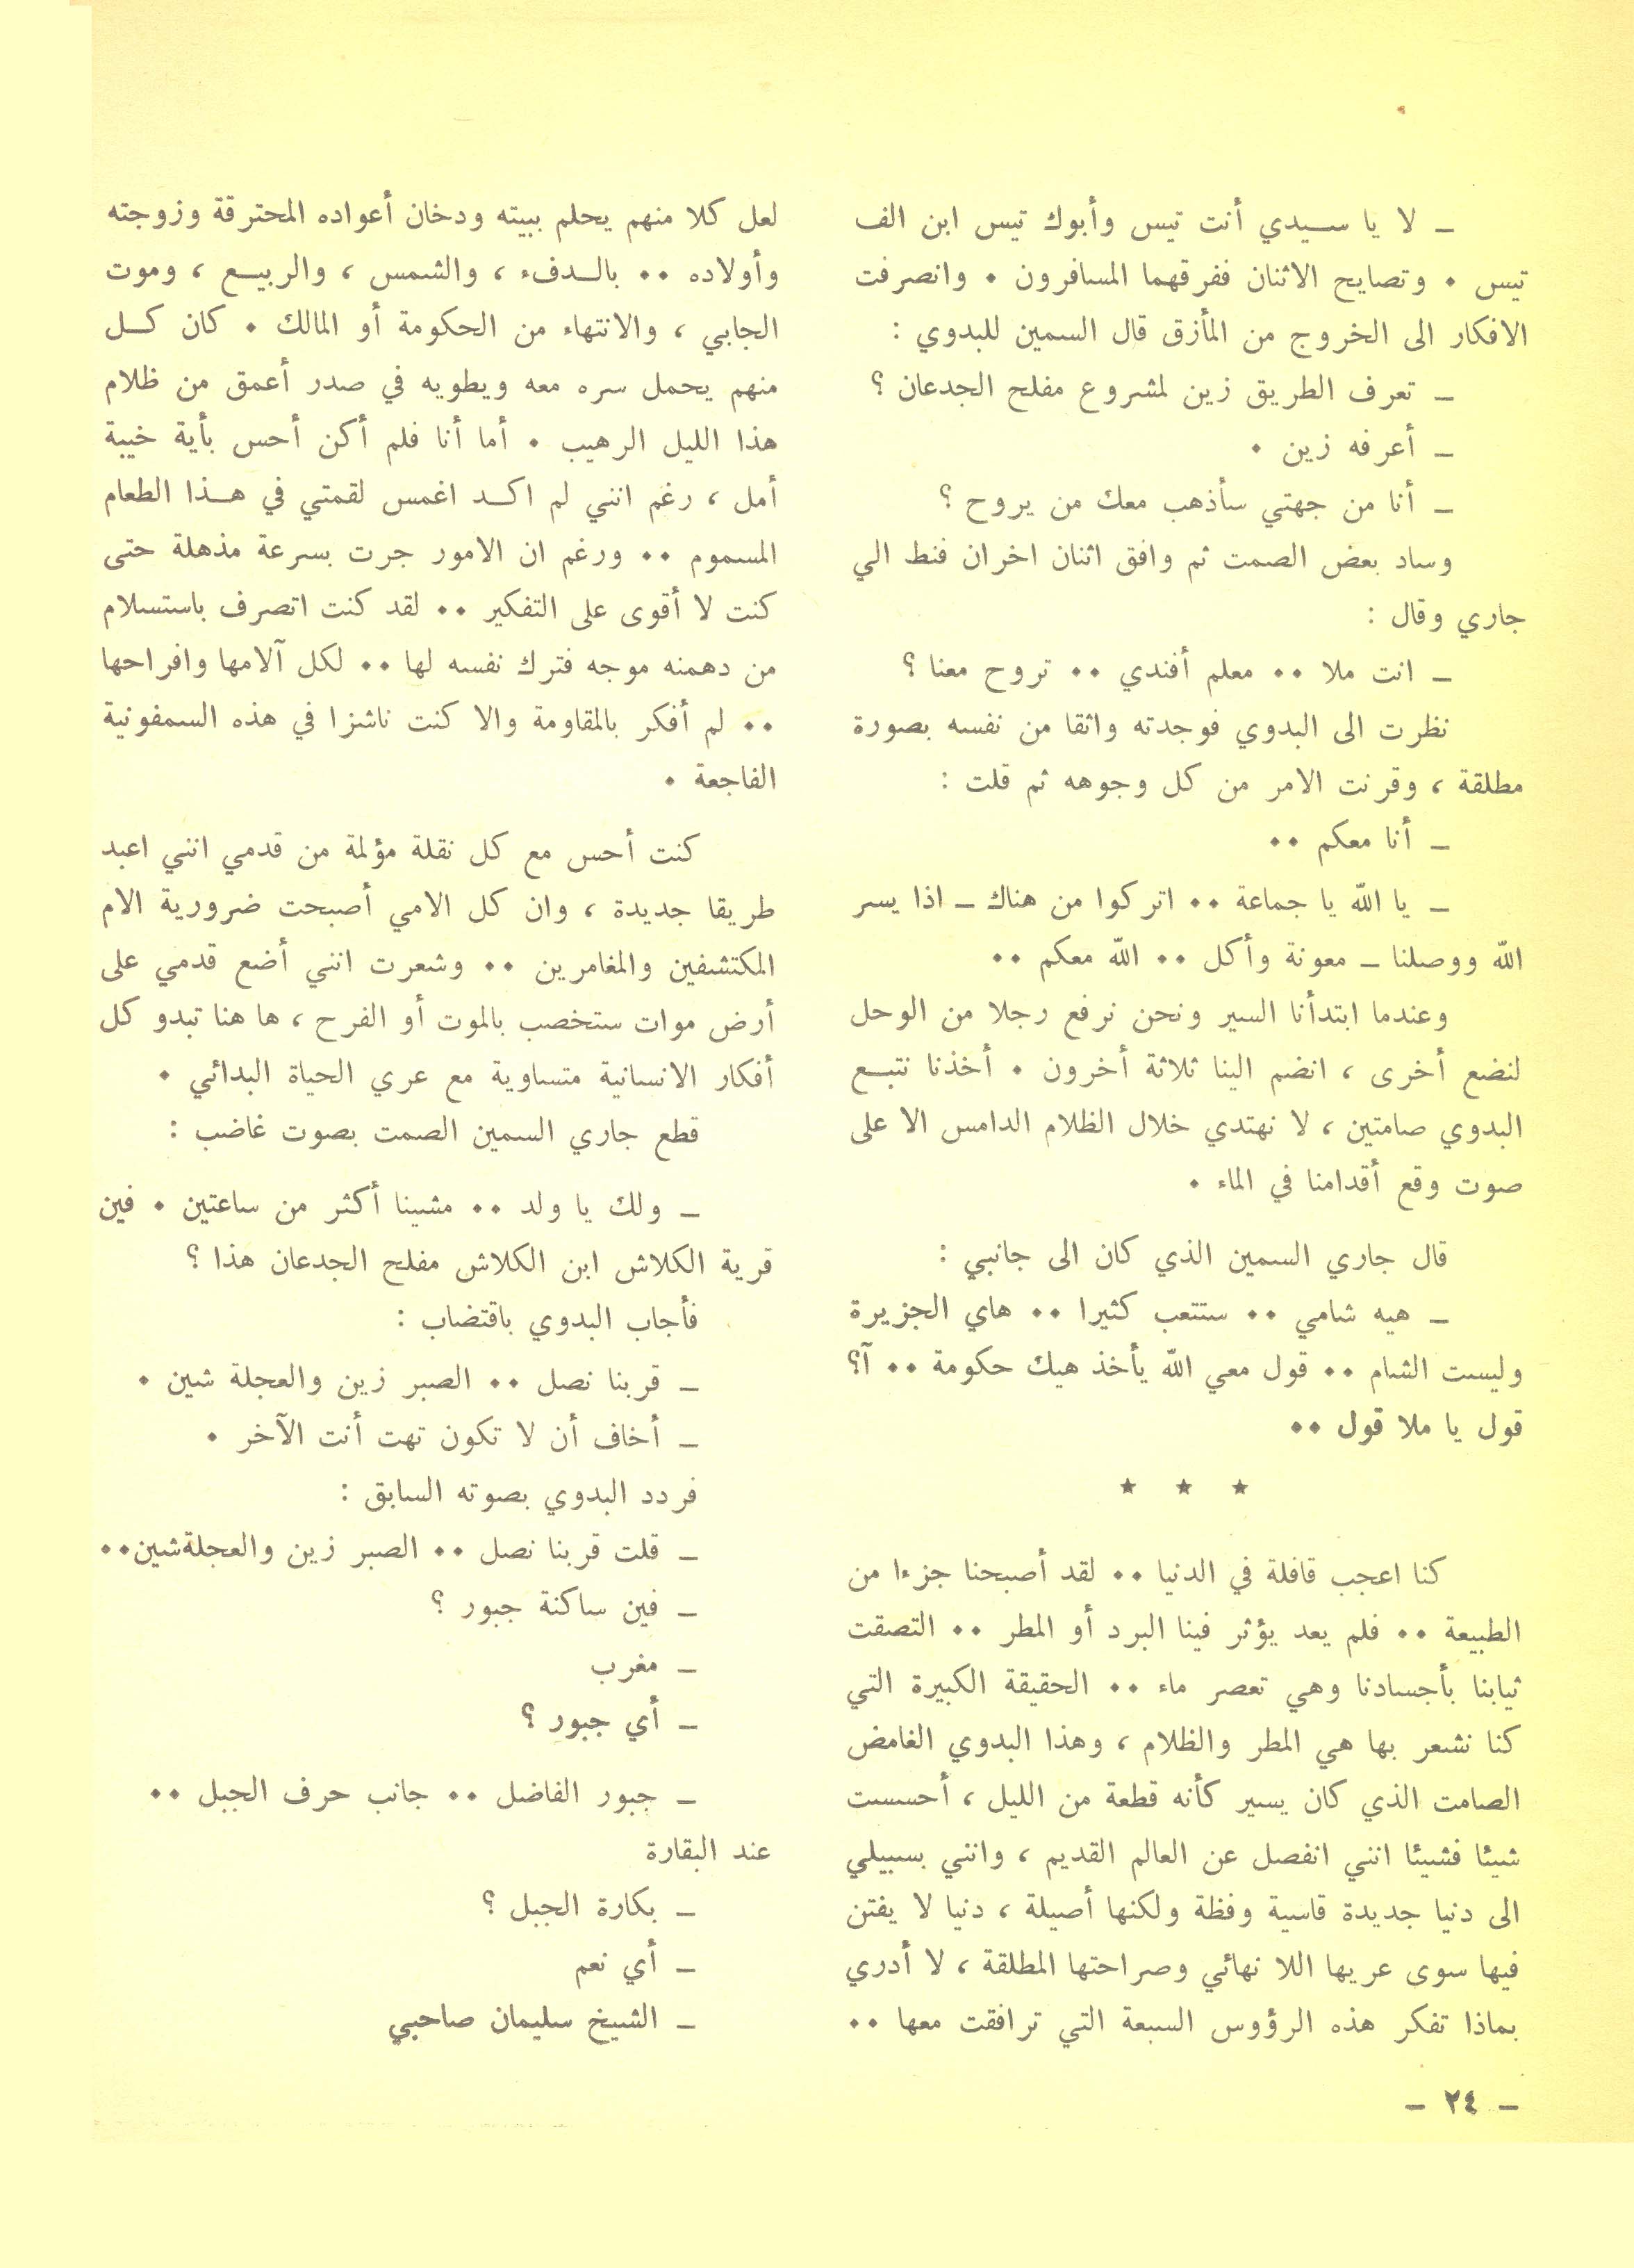 ـ لا يا سيدي أنت تيس وأبوك تيس ابن الف
تيس ٠ وتصايح الاثنان ففرقهما المسافرون ٠ وانصرفت
الافكار الى الخروج من المأزق قال السمين للبدوي :
ـ تعرف الطريق زين لمشروع مفلح الجدعان ؟
ـ أعرفه زين ٠
ـ أنا من جهتي سأذهب معك من يروح ؟
وساد بعض الصمت ثم وافق اثنان اخران فنط الي
جاري وقال :
ـ انت ملا ٠٠ معلم أفندي ٠٠ تروح معنا ؟
نظرت الى البدوي فوجدته واثقا من نفسه بصورة
مطلقة ، وقرنت الامر من كل وجوهه ثم قلت :
ـ أنا معكم ٠٠
ـ يا الله يا جماعة ٠٠ اتركوا من هناك ـ اذا يسر
الله ووصلنا ـ معونة وأكل ٠٠ الله معكم ٠٠
وعندما ابتدأنا السير ونحن نرفع رجلا من الوحل
لنضع أخرى ، انضم الينا ثلاثة أخرون ٠ أخذنا نتبع
البدوي صامتين ، لا نهتدي خلال الظلام الدامس الا على
صوت وقع أقدامنا في الماء ٠
قال جاري السمين الذي كان الى جانبي :
ـ هيه شامي ٠٠ ستتعب كثيرا ٠٠ هاي الجزيرة
وليست الشام ٠٠ قول معي الله يأخذ هيك حكومة ٠٠ آ؟
قول يا ملا قول ٠٠
★ ★ ★
كنا اعجب قافلة في الدنيا ٠٠ لقد أصبحنا جزءا من
الطبيعة ٠٠ فلم يعد يؤثر فينا البرد أو المطر ٠٠ التصقت
ثيابنا بأجسادنا وهي تعصر ماء ٠٠ الحقيقة الكبيرة التي
كنا نشعر بها هي المطر والظلام ، وهذا البدوي الغامض
الصامت الذي كان يسير كأنه قطعة من الليل ، أحسست
شيئا فشيئا انني انفصل عن العالم القديم ، وانني بسبيلي
الى دنيا جديدة قاسية وفظة ولكنها أصيلة ، دنيا لا يفتن
فيها سوى عريها اللا نهائي وصراحتها المطلقة ، لا أدري
بماذا تفكر هذه الرؤوس السبعة التي ترافقت معها ٠٠
لعل كلا منهم يحلم ببيته ودخان أعواده المحترقة وزوجته
وأولاده ٠٠ بالدفء ، والشمس ، والربيع ، وموت
الجابي ، والانتهاء من الحكومة أو المالك ٠ كان كل
منهم يحمل سره معه ويطويه في صدر أعمق من ظلام
هذا الليل الرهيب ٠ أما أنا فلم أكن أحس بأية خيبة
أمل ، رغم انني لم اكد اغمس لقمتي في هذا الطعام
المسموم ٠٠ ورغم ان الامور جرت بسرعة مذهلة حتى
كنت لا أقوى على التفكير ٠٠ لقد كنت اتصرف باستسلام
من دهمنه موجه فترك نفسه لها ٠٠ لكل آلامها وافراحها
٠٠ لم أفكر بالمقاومة والا كنت ناشزا في هذه السمفونية
الفاجعة ٠
كنت أحس مع كل نقلة مؤلمة من قدمي انني اعبد
طريقا جديدة ، وان كل الامي أصبحت ضرورية الام
المكتشفين والمغامرين ٠٠ وشعرت انني أضع قدمي على
أرض موات ستخصب بالموت أو الفرح ، ها هنا تبدو كل
أفكار الانسانية متساوية مع عري الحياة البدائي ٠
قطع جاري السمين الصمت بصوت غاضب :
ـ ولك يا ولد ٠٠ مشينا أكثر من ساعتين ٠ فين
قرية الكلاش ابن الكلاش مفلح الجدعان هذا ؟
فأجاب البدوي باقتضاب :
ـ قربنا نصل ٠٠ الصبر زين والعجلة شين ٠
ـ أخاف أن لا تكون تهت أنت الآخر ٠
فردد البدوي بصوته السابق :
ـ قلت قربنا نصل ٠٠ الصبر زين والعجلةشين٠٠
ـ فين ساكنة جبور ؟
ـ مغرب
ـ أي جبور ؟
ـ جبور الفاضل ٠٠ جانب حرف الجبل ٠٠
عند البقارة
ـ بكارة الجبل ؟
ـ أي نعم
ـ الشيخ سليمان صاحبي
ـ ٢٤ ـ